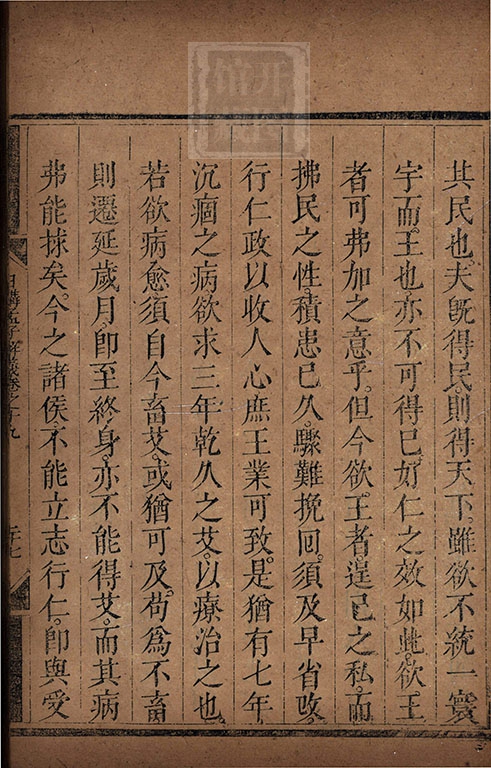 其民也。夫既得民。則得天下。雖欲不統一寰
宇而王也。亦不可得已。好仁之效如此。欲王
者可弗加之意乎。但今欲王者。逞己之私。而
拂民之性。積患已久。驟難挽回。須及早省改。
行仁政以收人心。庶王業可致。是猶有七年
沉痼之病。欲求三年乾久之艾。以療治之也。
若欲病愈。須自今畜艾。或猶可及。苟爲不畜
則遷延歲月。卽至終身。亦不能得艾。而其病
弗能捄矣。今之諸侯。不能立志行仁。卽與受
日講 解義卷之十九